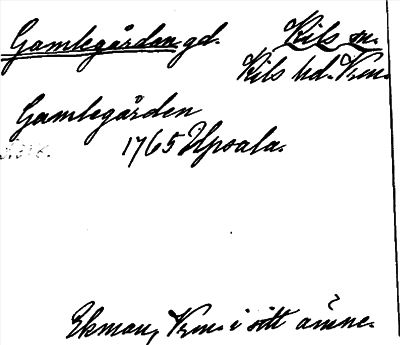 Gamlegården gd. Kils sn.
Kils hd. Vrm.
Gamlegården
1765 Upsala.
Ekman, Vrm. i sitt ämne.